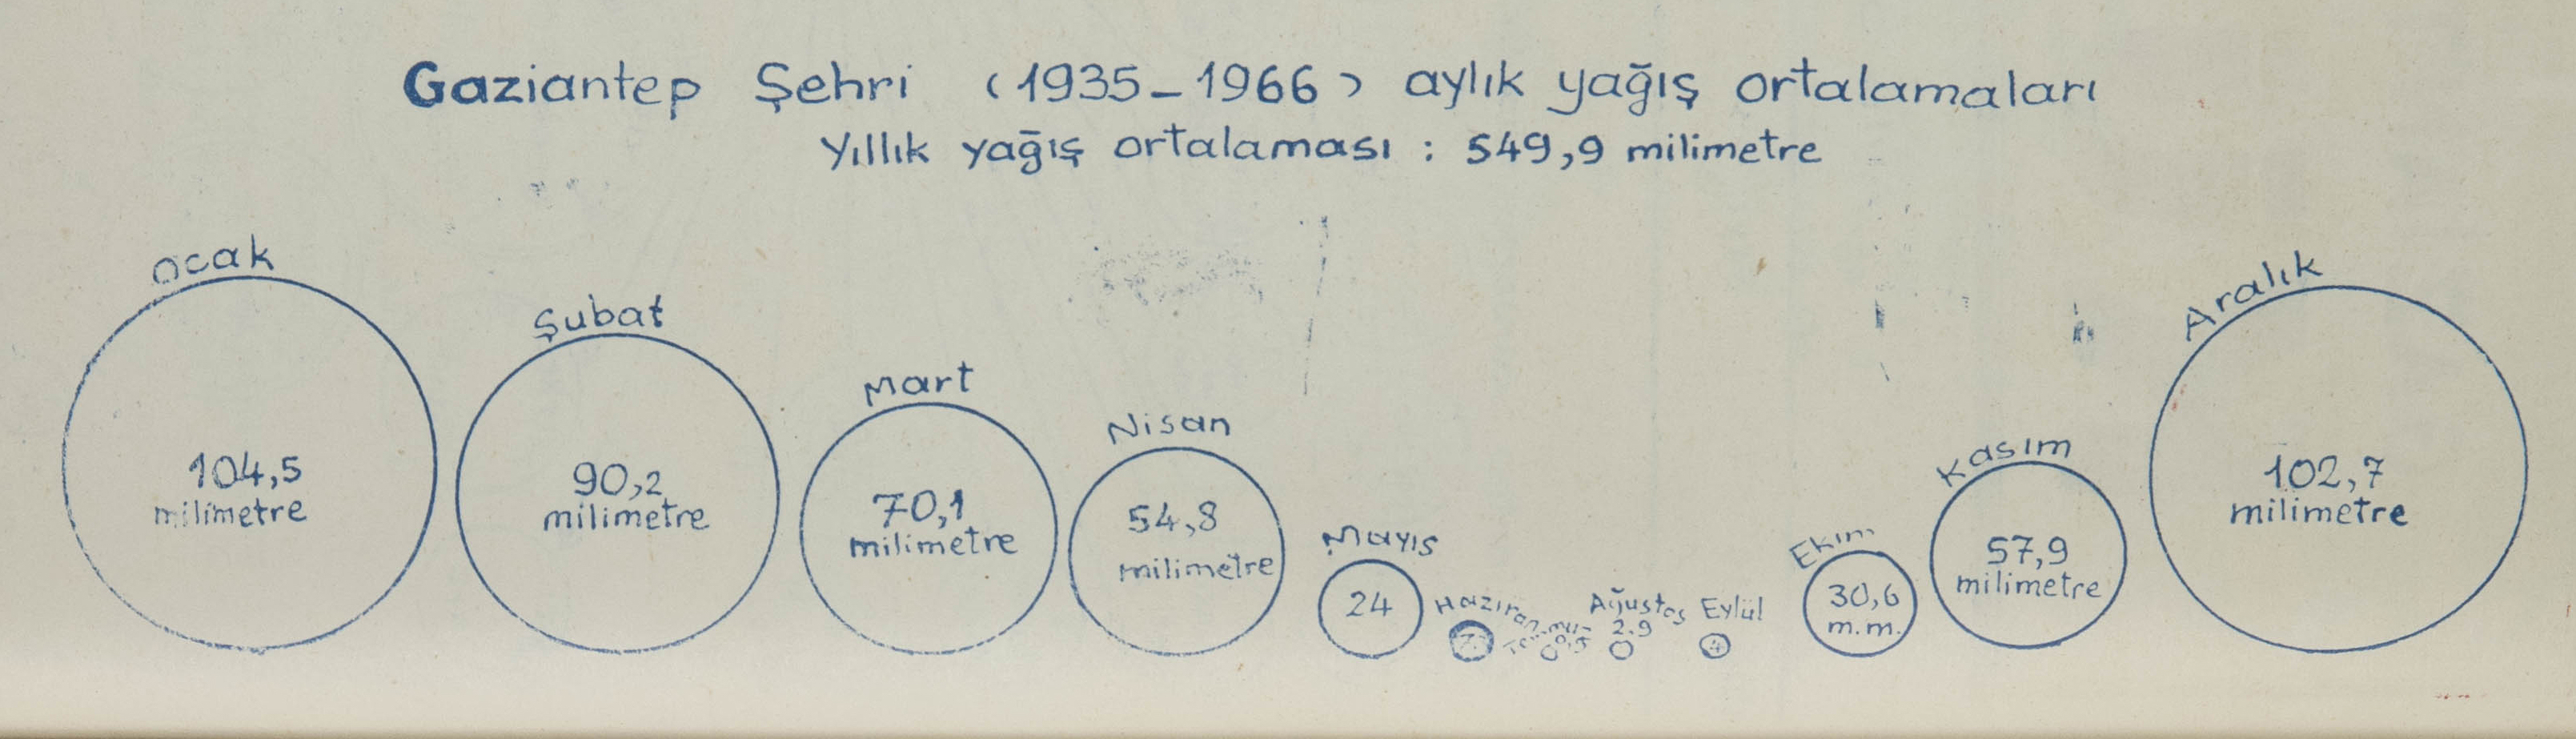 Gaziantep Şehri (1935-1966) aylık yağış ortalamaları
Yıllık yağış ortalaması : 549,9 milimetre
Ocak
104,5
milimetre
Şubat
90,2
milimetre
Mart
70,1
milimetre
Nisan
54,8
milimetre
Mayıs
24
Haziran
Ağustos
2.9
Eylül
4
Ekim
30,6
m.m.
Kasım
57,9
milimetre
Aralık
102,7
milimetre